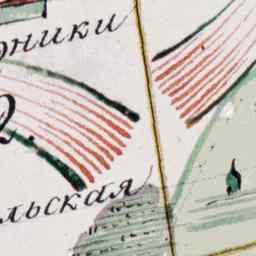 рники
2.
льская